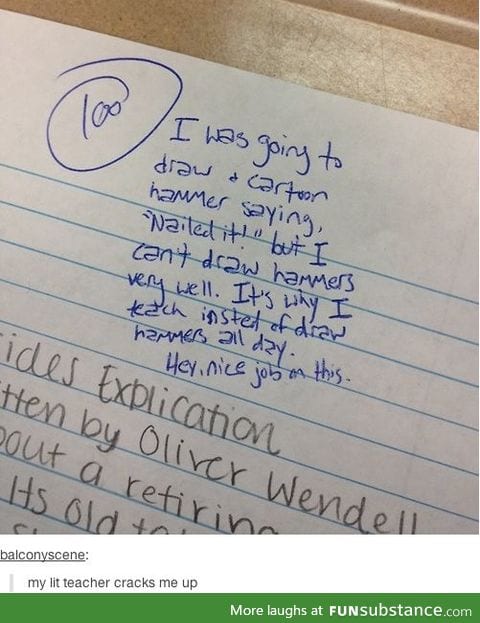 100
I was going to
draw a cartoon
hammer saying,
"Nailed it!" but I
can't draw hammers
very well. It's why I
teach insted of draw
hammers all day.
Hey, nice job on this.
ides Explication
tten by Oliver Wendell
bout a retiring
Its old
balconyscene:
my lit teacher cracks me up
More laughs at FUNsubstance.com